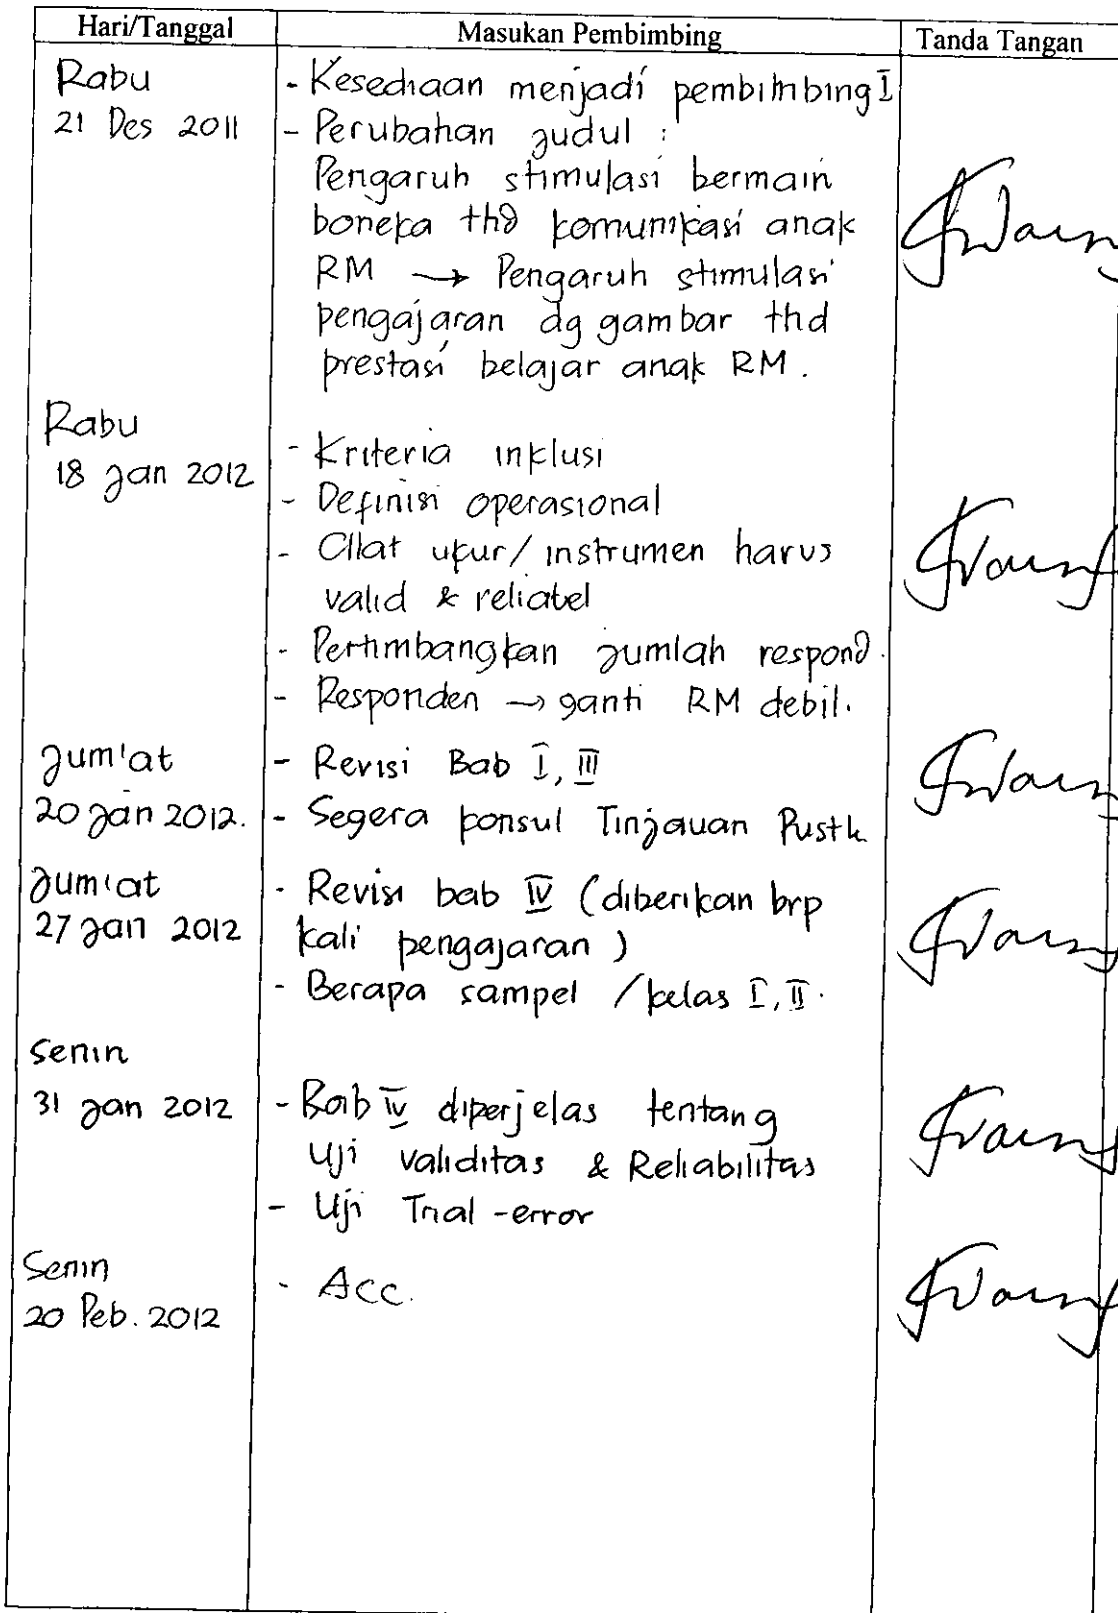 Hari/Tanggal Masukan Pembimbing Tanda Tangan
Rabu - Kesediaan menjadi pembimbing I
21 Des 2011 - Perubahan judul :
Pengaruh stimulasi bermain
boneka thd komunikasi anak
RM → Pengaruh stimulasi
pengajaran dg gambar thd
prestasi belajar anak RM.
Rabu
18 Jan 2012 - Kriteria inklusi
- Definisi operasional
- Alat ukur/instrumen harus
valid & reliabel
- Pertimbangkan jumlah respond.
- Responden → ganti RM debil.
Jum'at - Revisi Bab I, III
20 Jan 2012. - Segera konsul Tinjauan Pustk
Jum'at - Revisi bab IV (diberikan brp
27 Jan 2012 kali pengajaran)
- Berapa sampel /kelas I, II.
Senin
31 Jan 2012 - Bab IV diperjelas tentang
Uji validitas & Reliabilitas
- Uji Trial-error
Senin - Acc.
20 Peb. 2012